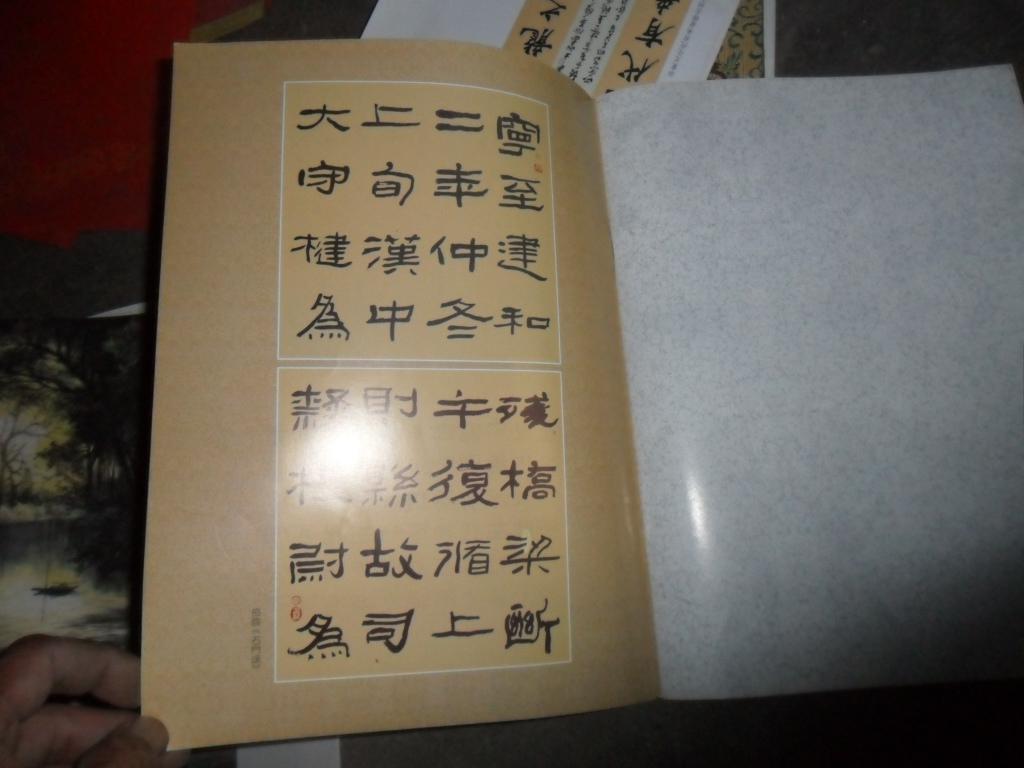 寧至建和
二年仲冬
上旬漢中
大守楗為
殘橋梁斷
午復循上
則縣故司
隸校尉為